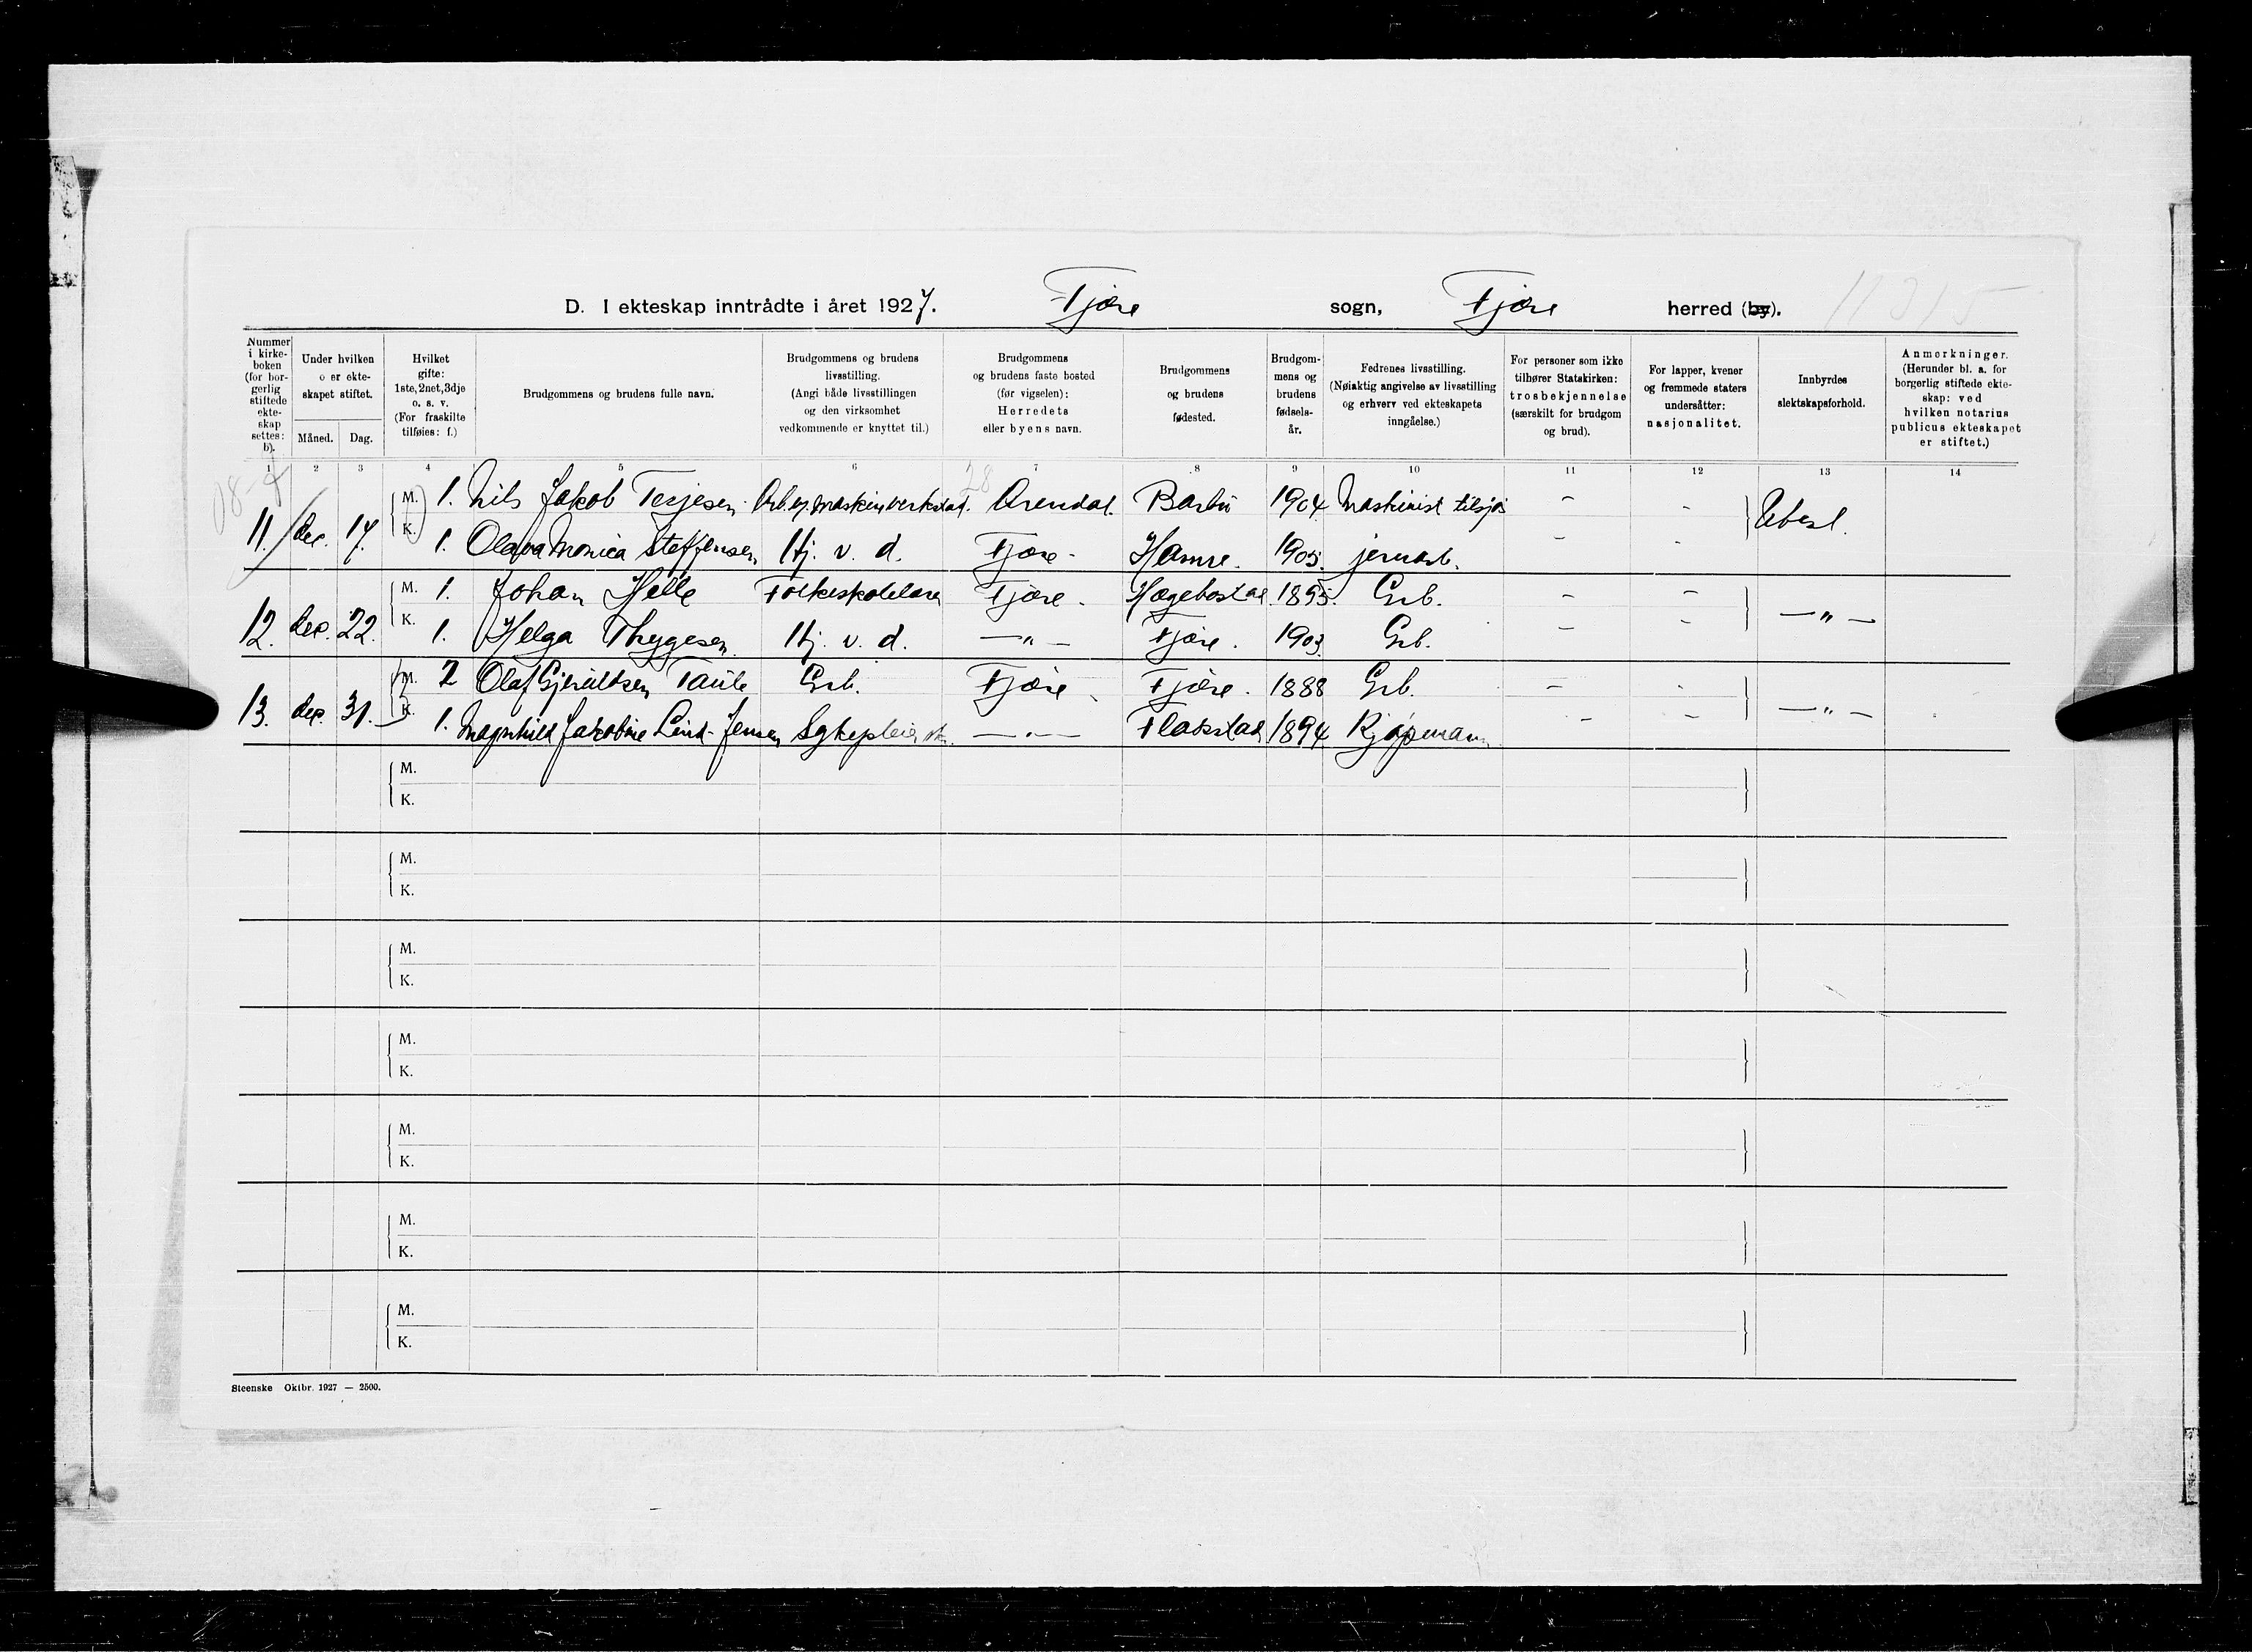 D. I ekteskap inntrådte i året 1927. Fjære sogn, Fjære herred (by). 11315
Nummer i kirkeboken (for borgerlig stiftede ekteskap settes: b).
Under hvilken o er ekteskapet stiftet.
Måned. Dag.
Hvilket gifte: 1ste, 2net, 3dje o. s. v. (For fraskilte tilføies: f.)
Brudgommens og brudens fulle navn.
Brudgommens og brudens livsstilling. (Angi både livsstillingen og den virksomhet vedkommende er knyttet til.)
Brudgommens og brudens faste bosted (før vigselen): Herredets eller byens navn.
Brudgommens og brudens fødested.
Brudgommens og brudens fødselsår.
Fedrenes livsstilling. (Nøiaktig angivelse av livsstilling og erhverv ved ekteskapets inngåelse.)
For personer som ikke tilhører Statskirken: trosbekjennelse (særskilt for brudgom og brud).
For lapper, kvener og fremmede staters undersåtter: nasjonalitet.
Innbyrdes slektskapsforhold.
Anmerkninger. (Herunder bl. a. for borgerlig stiftede ekteskap: ved hvilken notarius publicus ekteskapet er stiftet.)
1 2 3 4 5 6 7 8 9 10 11 12 13 14
M. 1. Nils Jakob Terjesen Arb. v. maskinverkstad. 28 Arendal. Barbu 1904 Maskinist tilsjøs - -
11. dec. 17. Ubesl.
K. 1. Olava Monica Steffensen Hj. v. d. Fjære. Hamre. 1905. jernarb. - -
M. 1. Johan Helle Folkeskolelærer Fjære. Hægebostad. 1895. Grb. - -
12. dec. 22. —"—
K. 1. Helga Thygesen Hj. v. d. —"— Fjære. 1903. Grb. - -
M. 2 Olaf Gjerultsen Taule Grb. Fjære Fjære. 1888 Grb. - -
13. dec. 31. —"—
K. 1. Magnhild Jakobine Lind-Jensen Sykepleierske. —"— Flakstad 1894 Kjøpmann - -
M.
K.
M.
K.
M.
K.
M.
K.
M.
K.
M.
K.
M.
K.
Steenske Oktbr. 1927 — 2500.